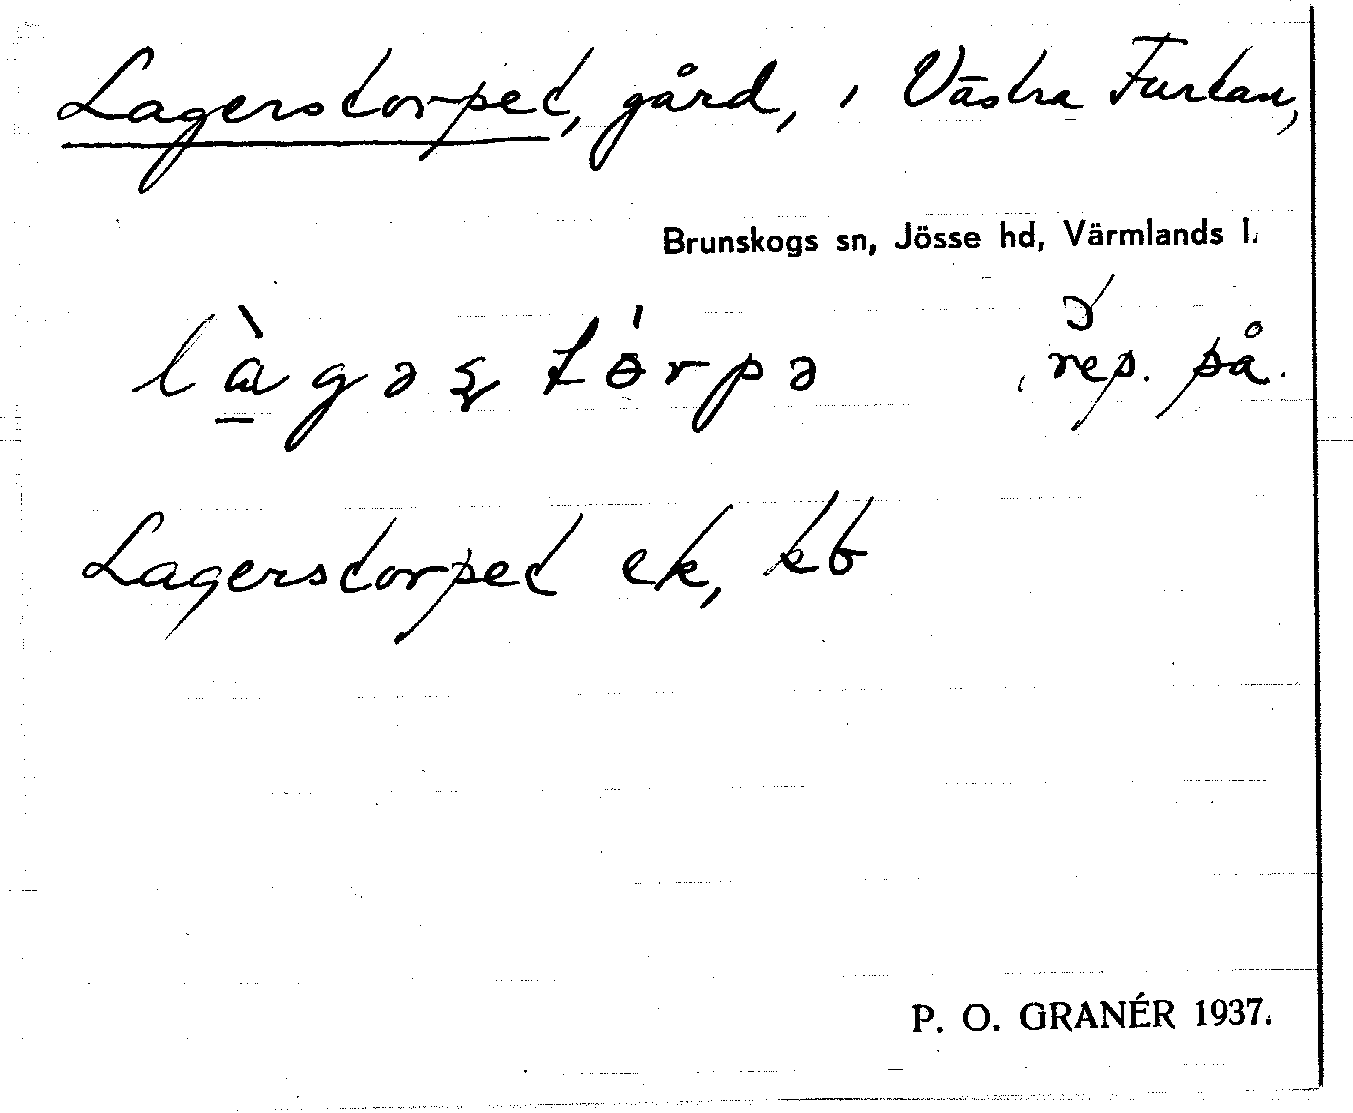 Lagerstorpet, gård, i Västra Furtan,
Brunskogs sn, Jösse hd, Värmlands l.
làgəştɵ́rpə rep. på.
Lagerstorpet ek, kb
P. O. GRANÉR 1937.